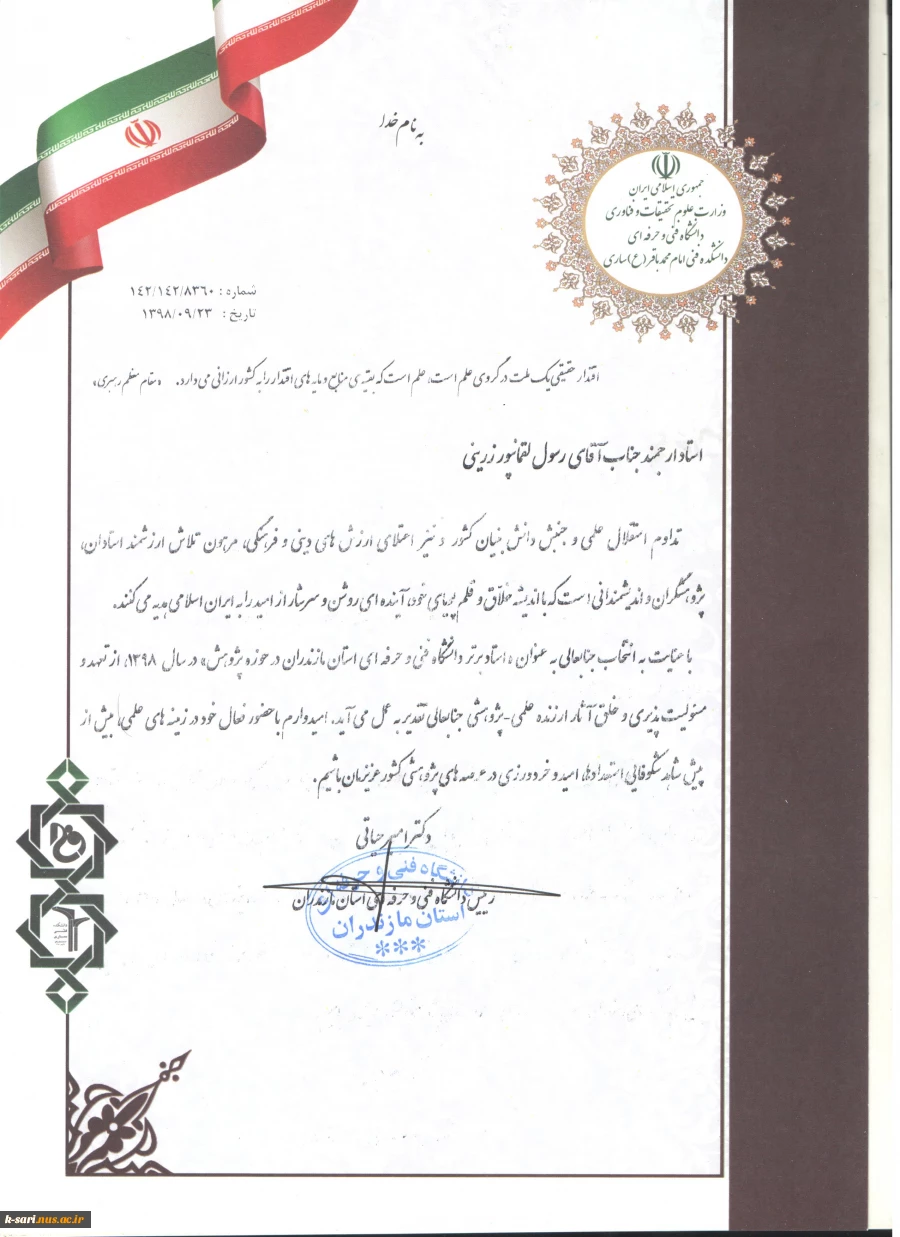 به نام خدا
جمهوری اسلامی ایران
وزارت علوم تحقیقات و فناوری
دانشگاه فنی و حرفه ای
دانشکده فنی امام محمد باقر (ع) ساری
شماره : ۱۴۲/۱۴۲/۸۳۶۰
تاریخ : ۱۳۹۸/۰۹/۲۳
اقتدار حقیقی یک ملت در گروی علم است، علم است که بقیه ی منابع و مایه های اقتدار را به کشور ارزانی می دارد. «مقام معظم رهبری»
استاد ارجمند جناب آقای رسول لقمانپور زرینی
تداوم استقلال علمی و جنبش دانش بنیان کشور و نیز اعتلای ارزش های دینی و فرهنگی، مرهون تلاش ارزشمند استادان،
پژوهشگران و اندیشمندانی است که با اندیشه خلاق و قلم پویای خود، آینده ای روشن و سرشار از امید را به ایران اسلامی هدیه می کنند.
با عنایت به انتخاب جنابعالی به عنوان «استاد برتر دانشگاه فنی و حرفه ای استان مازندران در حوزه پژوهش» در سال ۱۳۹۸، از تعهد و
مسئولیت پذیری و خلق آثار ارزنده علمی-پژوهشی جنابعالی تقدیر به عمل می آید. امیدوارم با حضور فعال خود در زمینه های علمی، بیش از
پیش شاهد شکوفایی استعدادها، امید و خردورزی در عرصه های پژوهشی کشور عزیزمان باشیم.
دکتر امیر حیاتی
رییس دانشگاه فنی و حرفه ای استان مازندران
دانشگاه فنی و حرفه ای
استان مازندران
***
k-sari.nus.ac.ir